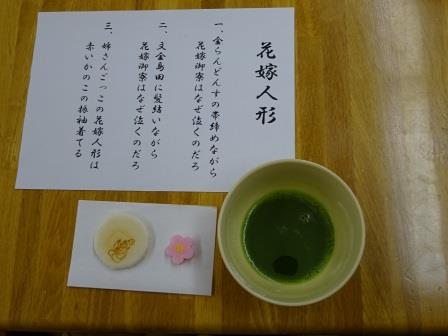 花嫁人形
一、金らんどんすの帯締めながら
花嫁御寮はなぜ泣くのだろ
二、文金島田に髪結いながら
花嫁御寮はなぜ泣くのだろ
三、姉さんごっこの花嫁人形は
赤いかのこの振袖着てる